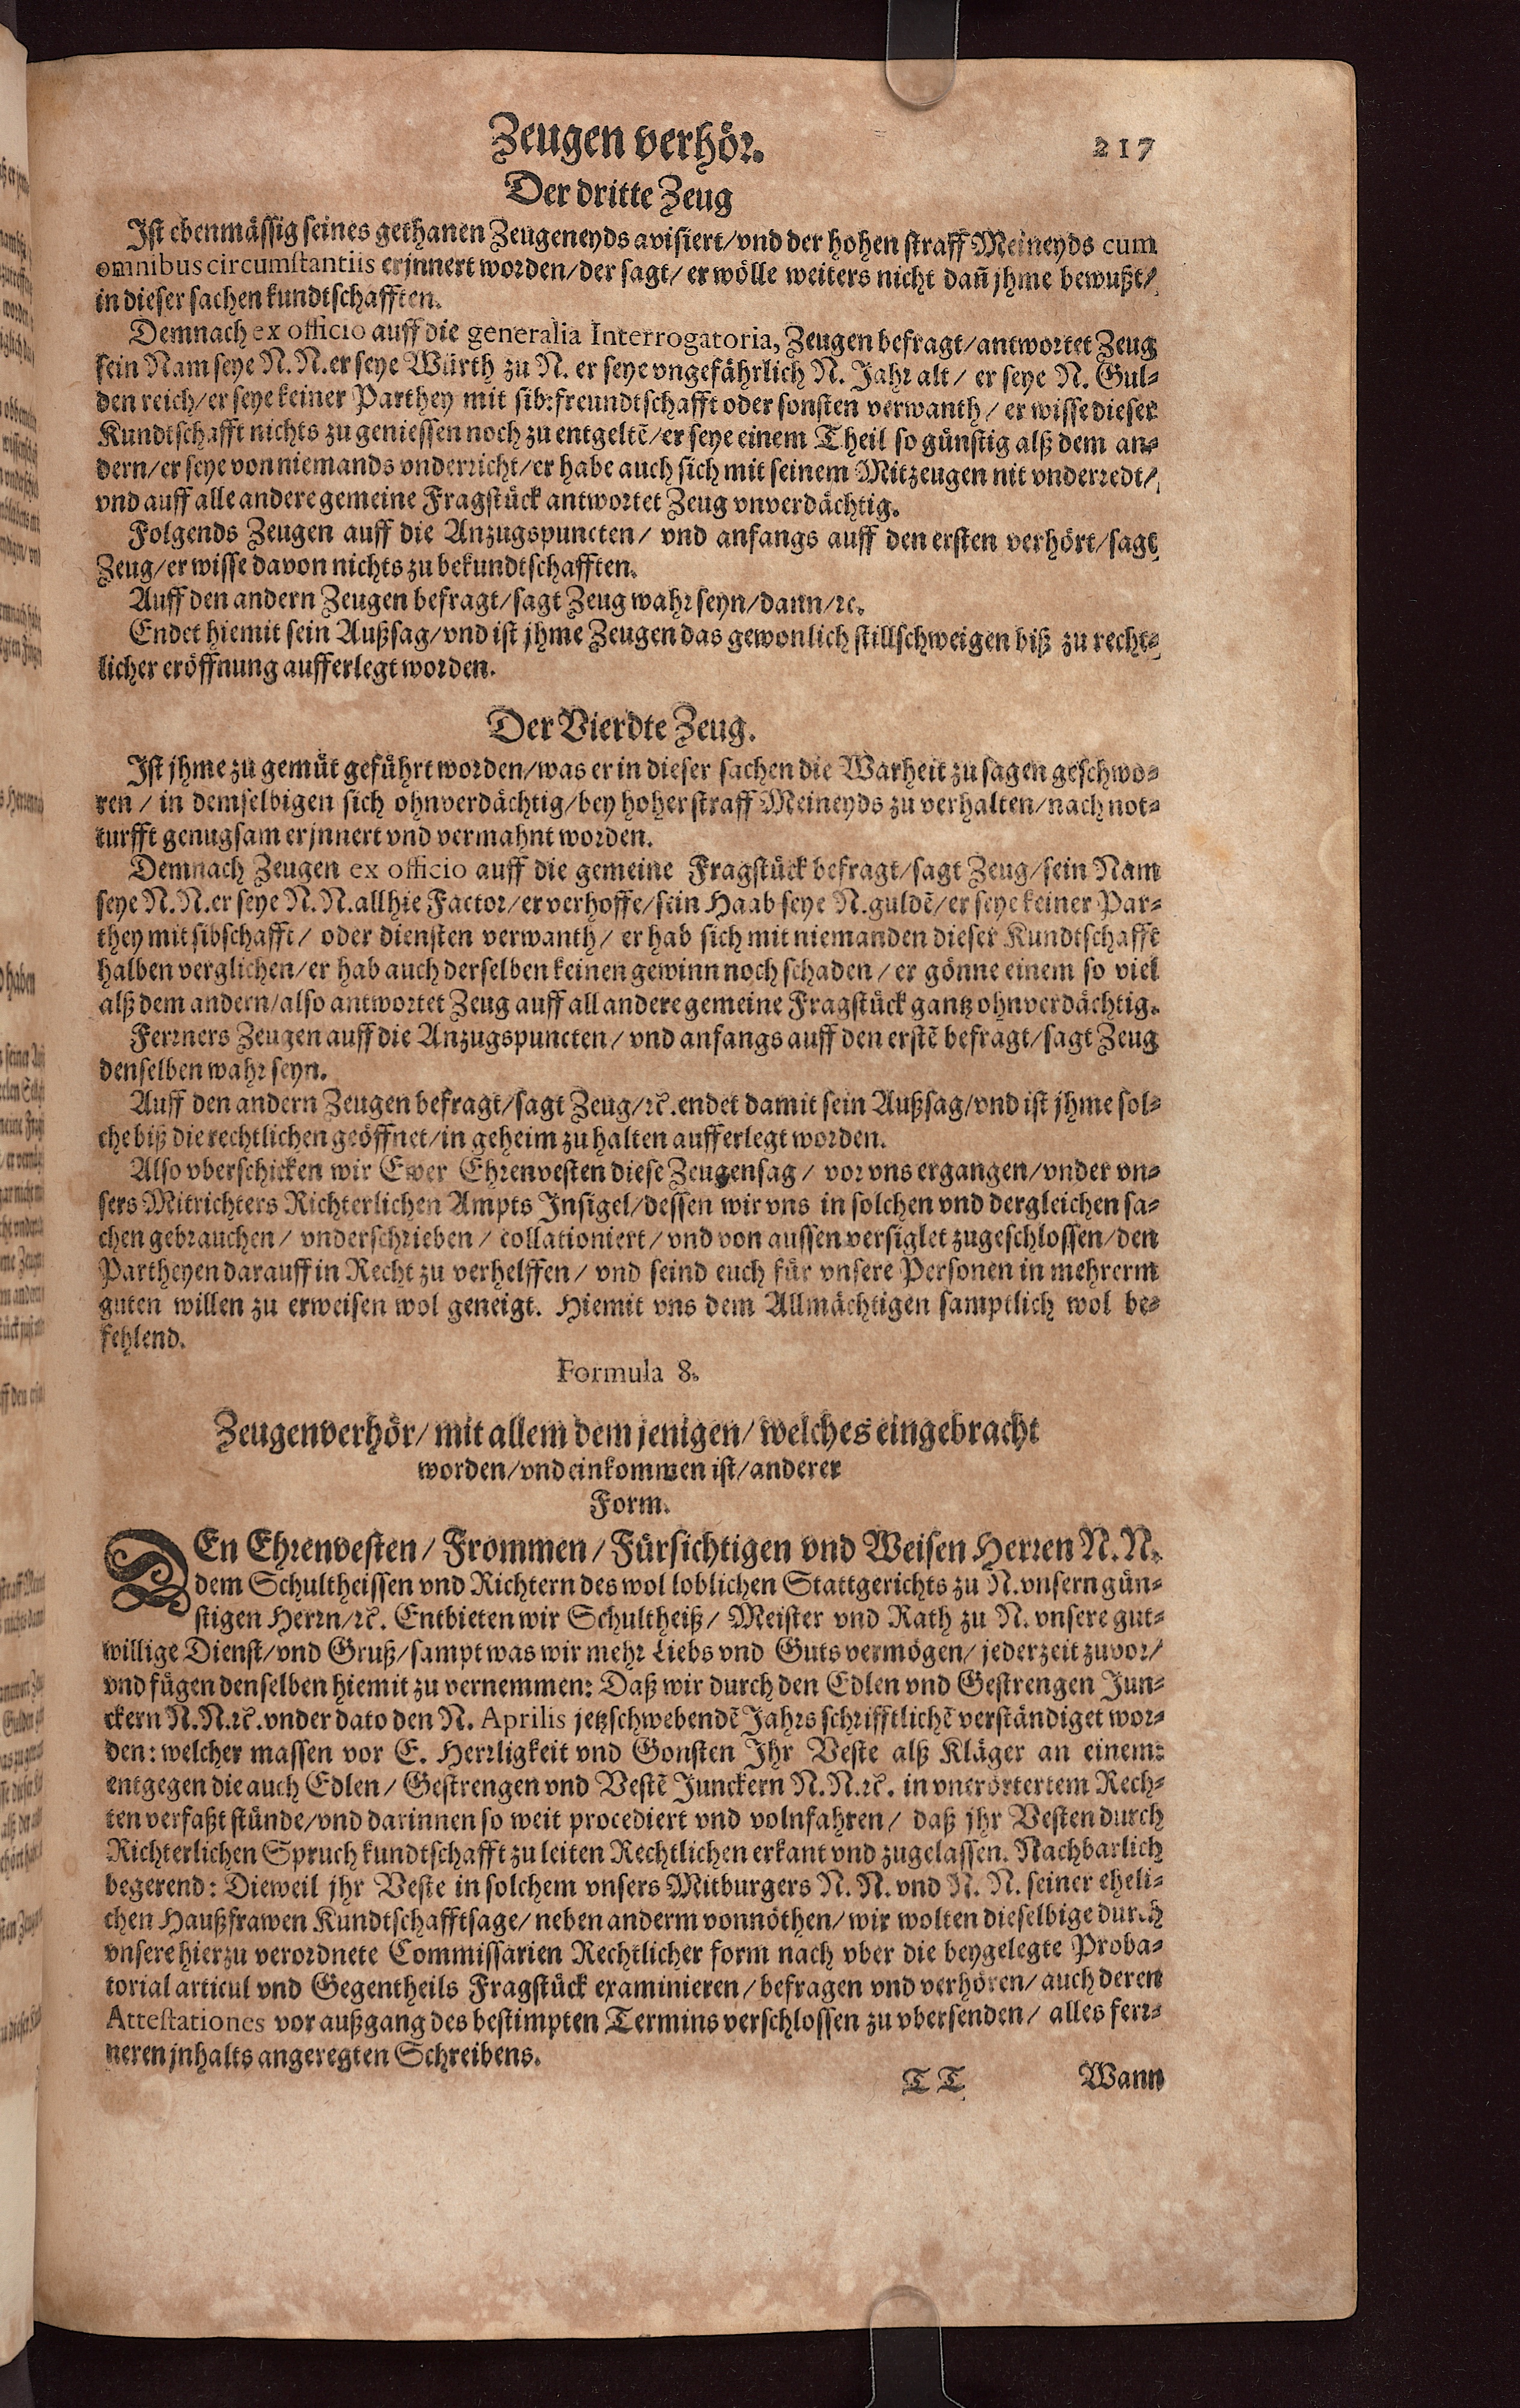 Zeugen verhör.
217
Der dritte Zeug
Ist ebenmässig seines gethanen Zeugeneyds avisiert/vnd der hohen straff Meineyds cum
omnibus circumstantiis erjnnert worden/der sagt/ er wölle weiters nicht dañ jhme bewußt/
in dieser sachen kundtschafften.
Demnach ex officio auff die generalia Interrogatoria, Zeugen befragt/antwortet Zeug
sein Nam seye N. N. er seye Würth zu N. er seye vngefährlich N. Jahr alt/ er seye N. Gul-
den reich/er seye keiner Parthey mit sib: freundtschafft oder sonsten verwanth/ er wisse dieser
Kundtschafft nichts zu geniessen noch zu entgeltē/er seye einem Theil so günstig alß dem an-
dern/er seye von niemands vnderricht/er habe auch sich mit seinem Mitzeugen nit vnderredt/
vnd auff alle andere gemeine Fragstück antwortet Zeug vnverdächtig.
Folgends Zeugen auff die Anzugspuncten/ vnd anfangs auff den ersten verhört/sagt
Zeug/er wisse davon nichts zu bekundtschafften.
Auff den andern Zeugen befragt/sagt Zeug wahr seyn/dann/ꝛc.
Endet hiemit sein Außsag/vnd ist jhme Zeugen das gewonlich stillschweigen biß zu recht-
licher eröffnung aufferlegt worden.
Der Vierdte Zeug.
Ist jhme zu gemüt geführt worden/was er in dieser sachen die Warheit zu sagen geschwo-
ren/ in demselbigen sich ohnverdächtig/bey hoher straff Meineyds zu verhalten/nach not-
turfft genugsam erjnnert vnd vermahnt worden.
Demnach Zeugen ex officio auff die gemeine Fragstück befragt/sagt Zeug/sein Nam
seye N. N. er seye N. N. allhie Factor/er verhoffe/sein Haab seye N. guldē/er seye keiner Par-
they mit sibschafft/ oder diensten verwanth/ er hab sich mit niemanden dieser Kundtschafft
halben verglichen/er hab auch derselben keinen gewinn noch schaden/ er gönne einem so viel
alß dem andern/also antwortet Zeug auff all andere gemeine Fragstück gantz ohnverdächtig.
Ferrners Zeugen auff die Anzugspuncten/ vnd anfangs auff den erstē befragt/sagt Zeug
denselben wahr seyn.
Auff den andern Zeugen befragt/sagt Zeug/ꝛc. endet damit sein Außsag/vnd ist jhme sol-
che biß die rechtlichen geöffnet/in geheim zu halten aufferlegt worden.
Also vberschicken wir Ewer Ehrenvesten diese Zeugensag/ vor vns ergangen/vnder vn-
sers Mitrichters Richterlichen Ampts Insigel/dessen wir vns in solchen vnd dergleichen sa-
chen gebrauchen/ vnderschrieben/ collationiert/ vnd von aussen versiglet zugeschlossen/den
Partheyen darauff in Recht zu verhelffen/ vnd seind euch für vnsere Personen in mehrerm
guten willen zu erweisen wol geneigt. Hiemit vns dem Allmächtigen samptlich wol be-
fehlend.
Formula 8.
Zeugenverhör/mit allem dem jenigen/welches eingebracht
worden/vnd einkommen ist/anderer
Form.
DEn Ehrenvesten/Frommen/Fürsichtigen vnd Weisen Herren N. N.
dem Schultheissen vnd Richtern des wol loblichen Stattgerichts zu N. vnsern gün-
stigen Herrn/ꝛc. Entbieten wir Schultheiß/ Meister vnd Rath zu N. vnsere gut-
willige Dienst/vnd Gruß/sampt was wir mehr Liebs vnd Guts vermögen/ jederzeit zuvor/
vnd fügen denselben hiemit zu vernemmen: Daß wir durch den Edlen vnd Gestrengen Jun-
ckern N. N. ꝛc. vnder dato den N. Aprilis jetzschwebendē Jahrs schrifftlichē verständiget wor-
den: welcher massen vor E. Herrligkeit vnd Gonsten Ihr Veste alß Kläger an einem:
entgegen die auch Edlen/ Gestrengen vnd Vestē Junckern N. N. ꝛc. in vnerörtertem Rech-
ten verfaßt stünde/vnd darinnen so weit procediert vnd volnfahren/ daß jhr Vesten durch
Richterlichen Spruch kundtschafft zu leiten Rechtlichen erkant vnd zugelassen. Nachbarlich
begerend: Dieweil jhr Veste in solchem vnsers Mitburgers N. N. vnd N. N. seiner eheli-
chen Haußfrawen Kundtschafftsage/neben anderm vonnöthen/wir wolten dieselbige durch
vnsere hierzu verordnete Commissarien Rechtlicher form nach vber die beygelegte Proba-
torial articul vnd Gegentheils Fragstück examinieren/befragen vnd verhören/auch deren
Attestationes vor außgang des bestimpten Termins verschlossen zu vbersenden/ alles ferr-
neren jnhalts angeregten Schreibens.
TT
Wann